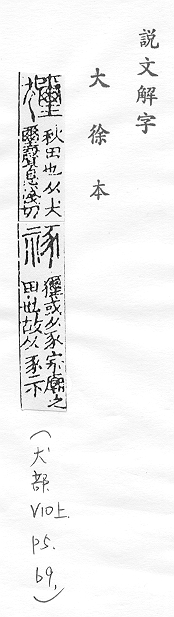 説文解字
大徐本
秋田也从犬
璽聲息淺切
或从豕宗廟之
田也故从豕示
(犬部 V10上 p5. b9,)